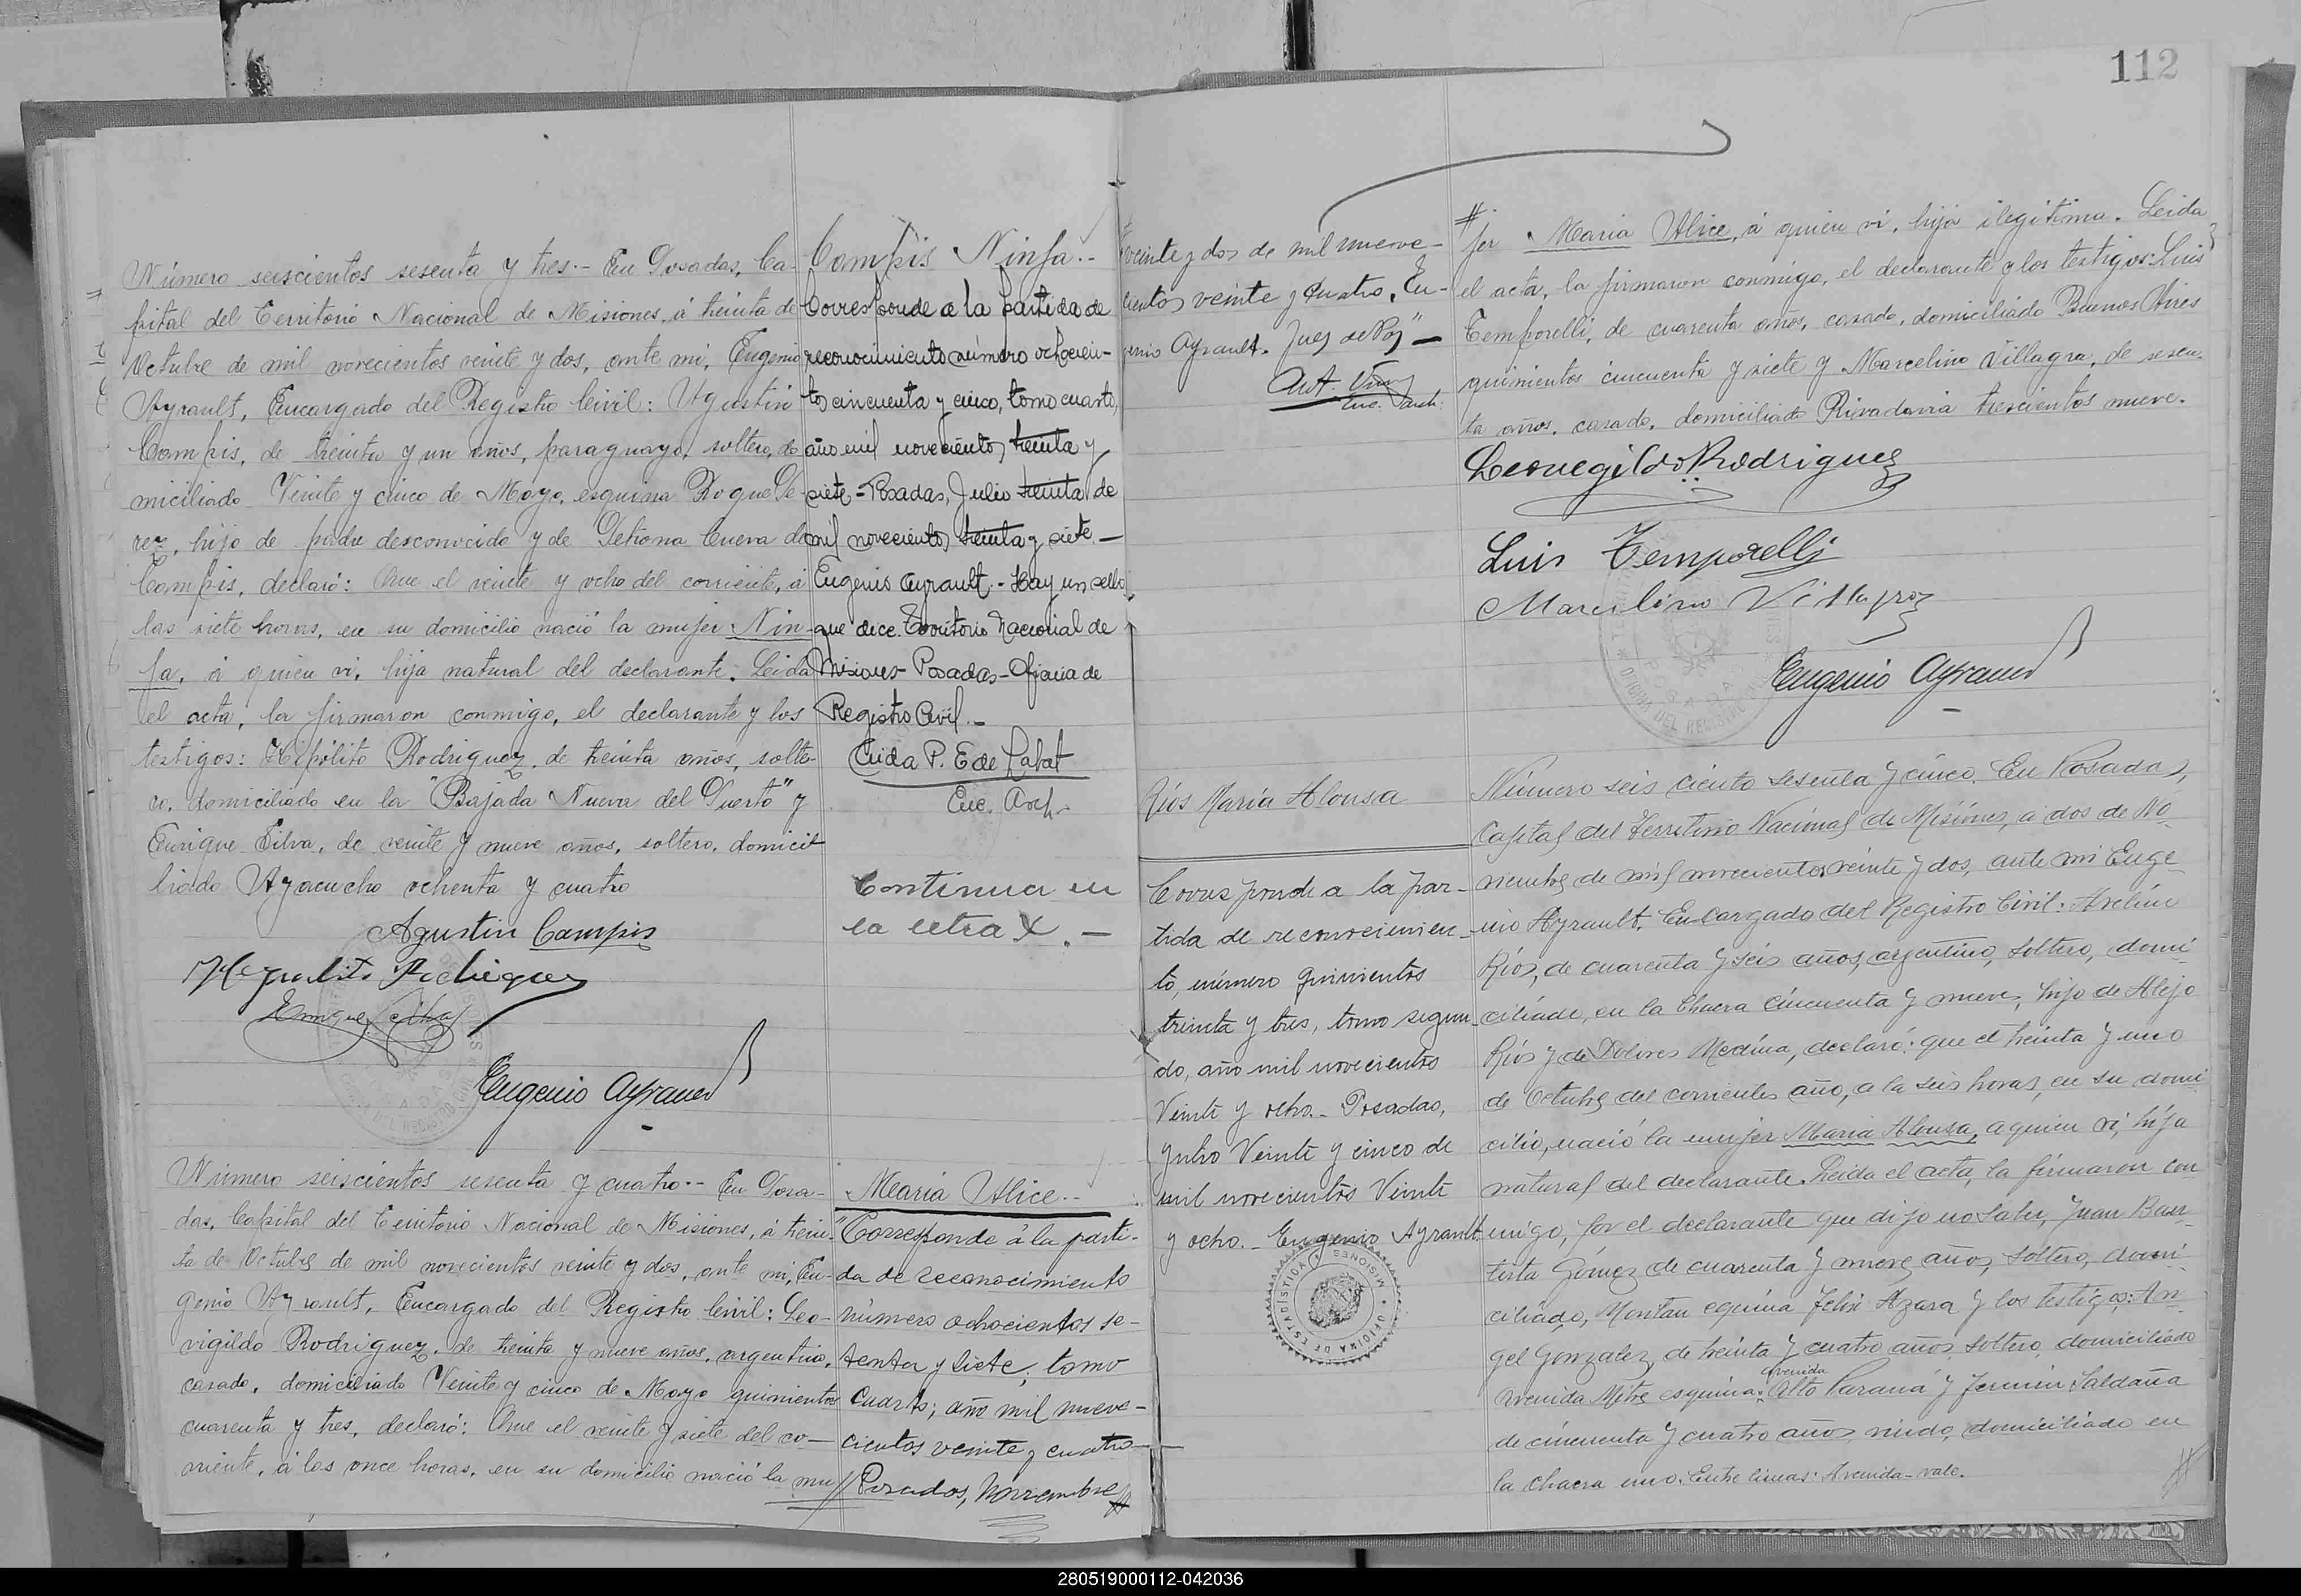 112
Número seiscientos sesenta y tres.- En Posadas, Ca-
pital del Territorio Nacional de Misiones, á treinta de
Octubre de mil novecientos veinte y dos, ante mi, Eugenio
Ayrault, Encargado del Registro Civil: Agustín
Campis, de treinta y un años, paraguayo, soltero, do
miciliado Veinte y cinco de Mayo, esquina Roque Pe-
rez, hijo de padre desconocido y de Petrona Cueva de
Campis, declaró: Que el veinte y ocho del corriente, á
las siete horas, en su domicilio nació la mujer Nin-
fa, á quien vi, hija natural del declarante. Leida
el acta, la firmaron conmigo, el declarante y los
testigos: Hipólito Rodriguez, de treinta años, solte-
ro, domiciliado en la "Bajada Nueva del Puerto" y
Enrique Silva, de veinte y nueve años, soltero, domici-
liado Ayacucho ochenta y cuatro
Agustin Campis
Hipolito Rodriguez
Enrique Silva
Eugenio Ayrault
Campis Ninfa.-
Corresponde a la partida de
reconocimiento número ochocien-
tos cincuenta y cinco, tomo cuarto,
año mil novecientos treinta y
siete - Posadas, Julio treinta de
mil novecientos treinta y siete.-
Eugenio Ayrault.- Hay un sello
que dice. Territorio Nacional de
Misiones- Posadas- Oficina de
Registro Civil.-
P. E de Labat
Enc. Arch.
Continua en
la letra X.-
Número seiscientos sesenta y cuatro.- En Posa-
das, Capital del Territorio Nacional de Misiones, á trein-
ta de Octubre de mil novecientos veinte y dos, ante mi, Eu-
genio Ayrault, Encargado del Registro Civil: Leo-
vigildo Rodriguez, de treinta y nueve años, argentino,
casado, domiciliado Veinte y cinco de Mayo quinientos
cuarenta y tres, declaró: Que el veinte y siete del co-
rriente, á las once horas, en su domicilio nació la mu//
Maria Alice.-
"Corresponde á la parti-
da de reconocimiento
número ochocientos se-
tenta y siete; tomo
cuarto; año mil nueve-
cientos veinte y cuatro
Posadas, Noviembre #
veinte y dos de mil nueve-
cientos veinte y cuatro. Eu-
genio Ayrault. Juez de Paz" -
Enc. Arch.
# jer Maria Alice, á quien vi, hija ilegítima. Leida
el acta, la firmaron conmigo, el declarante y los testigos: Luis
Temporelli, de cuarenta años, casado, domiciliado Buenos Aires
quinientos cincuenta y siete y Marcelino Villagra, de sesen-
ta años, casado, domiciliado Rivadavia trescientos nueve.
Leovegildo Rodriguez
Luis Temporelli
Marcelino Villagra
Eugenio Ayrault
Ríos María Alousa
Corresponde a la par-
tida de reconocimien-
to, número quinientos
treinta y tres, tomo segun-
do, año mil novecientos
Veinte y ocho.- Posadas,
Julio Veinte y cinco de
mil novecientos Veinte
y ocho.- Eugenio Ayrault
OFICINA DE ESTADISTICA MISIONES
Número seis ciento sesenta y cinco. En Posadas,
Capital del Territorio Nacional de Misiones, a dos de No-
viembre de mil novecientos veinte y dos, ante mi Euge-
nio Ayrault, Encargado del Registro Civil: Avelino
Ríos, de cuarenta y seis años, argentino, soltero, domi-
ciliado, en la Chacra cincuenta y nueve, hijo de Alejo
Ríos y de Dolores Medina, declaró: que el treinta y uno
de Octubre del corrientes año, a la seis horas, en su domi
cilio, nació la mujer Maria Alousa, a quien vi, hija
natural del declarante. Leida el acta, la firmaron con
migo, por el declarante que dijo no saber, Juan Bau-
tista Gómez de cuarenta y nueve años, soltero, domi-
ciliado, Montan equina Felix Azara y los testigos: An-
gel Gonzalez, de treinta y cuatro años, soltero, domiciliado
avenida Mitre esquina avenida Alto Paraná y Fermin Saldaña
de cincuenta y cuatro años, viudo, domiciliado en
la Chacra uno. Entre lineas: Avenida-vale.
280519000112-042036